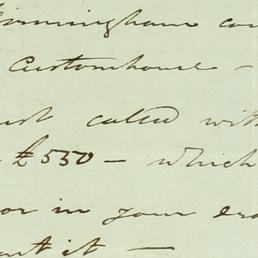 Birmingham
Customhouse —
called with
£550 — which
or in your
it —